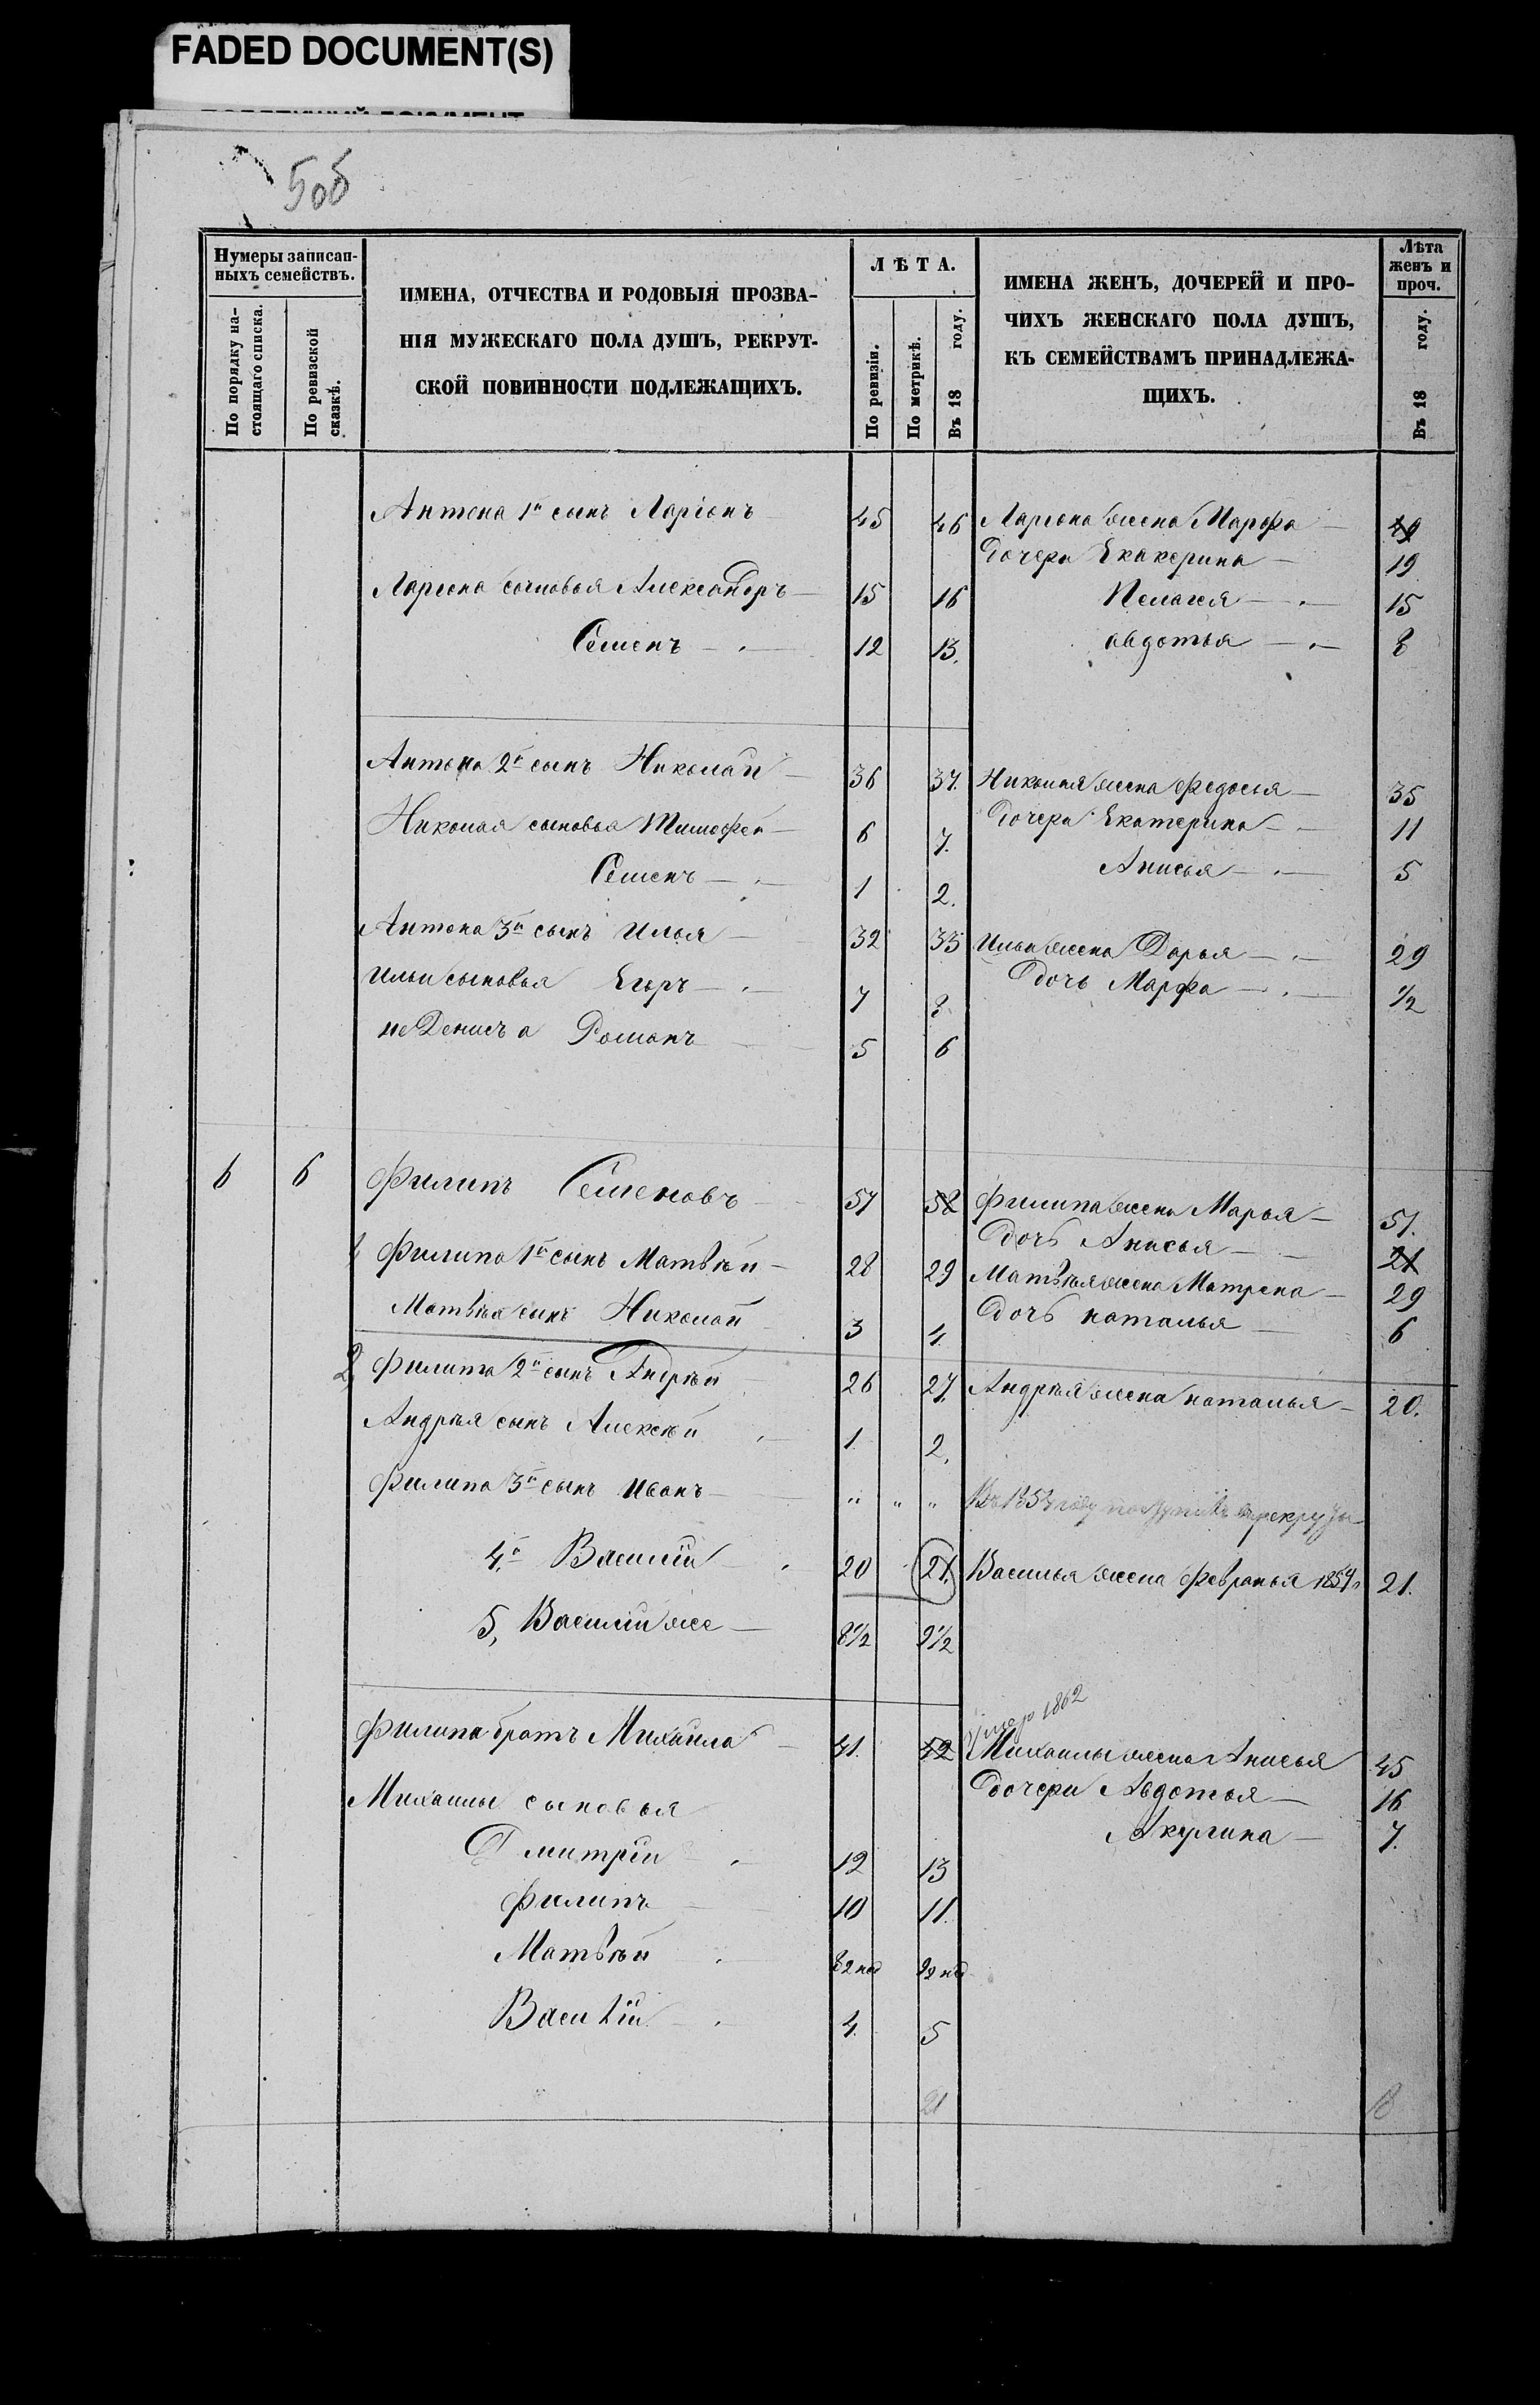 FADED DOCUMENT(S)
5об
Нумеры записан-
ныхъ семействъ.
По порядку на-
стоящаго списка.
По ревизской
сказкѣ.
ИМЕНА, ОТЧЕСТВА И РОДОВЫЯ ПРОЗВА-
НІЯ МУЖЕСКАГО ПОЛА ДУШЪ, РЕКРУТ-
СКОЙ ПОВИННОСТИ ПОДЛЕЖАЩИХЪ.
ЛѢТА.
По ревизіи.
По метрикѣ.
Въ 18 году.
ИМЕНА ЖЕНЪ, ДОЧЕРЕЙ И ПРО-
ЧИХЪ ЖЕНСКАГО ПОЛА ДУШЪ,
КЪ СЕМЕЙСТВАМЪ ПРИНАДЛЕЖА-
ЩИХЪ.
Лѣта
женъ и
проч.
Въ 18 году.
Антона 1й сынъ Ларіонъ 45 46 Ларіона жена Марфа —
дочери Екатерина — 19
Ларіона сыновья Александръ — 15 16 Пелагея — 15
Семенъ — 12 13. авдотья — 8
Антона 2й сынъ Николай — 36 37. Николая жена Федосья — 35
Николая сыновья Тимофей — 6 7. дочери Екатерина — 11
Семенъ — 1 2. Анисья — 5
Антона 3й сынъ Илья — 32 33 Ильи жена Дарья — 29
Ильи сыновья Егоръ — 7 8 дочь Марфа — 1/2
не Денисъ а Романъ 5 6
6 6 Филипъ Семеновъ 57 58 Филипа жена Марья — 51.
дочь Анисья — 21
1 Филипа 1й сынъ Матвѣй — 28 29 Матвѣя жена Матрена — 29
Матвѣя сынъ Николай 3 4. дочь наталья — 6
2 Филипа 2й сынъ Андрѣй 26 27. Андрѣя жена наталья — 20.
Андрѣя сынъ Алексѣй 1. 2.
Филипа 3й сынъ Иванъ — " " " Въ 1854 году поступилъ в рекруты
4.й Василій 20 21. Василья жена Февронья 1859 21.
5, Василій же — 8 1/2 9 1/2
умеръ 1862
Филипа братъ Михаила — 41. 42 Михаилы жена Анисья 45
Михаилы сыновья дочери Авдотья — 16
Акулина — 7.
Дмитрій 12 13
Филипъ 10 11.
Матвѣй 8 2 нед 9 2 нед
Василій 4. 5
21 18